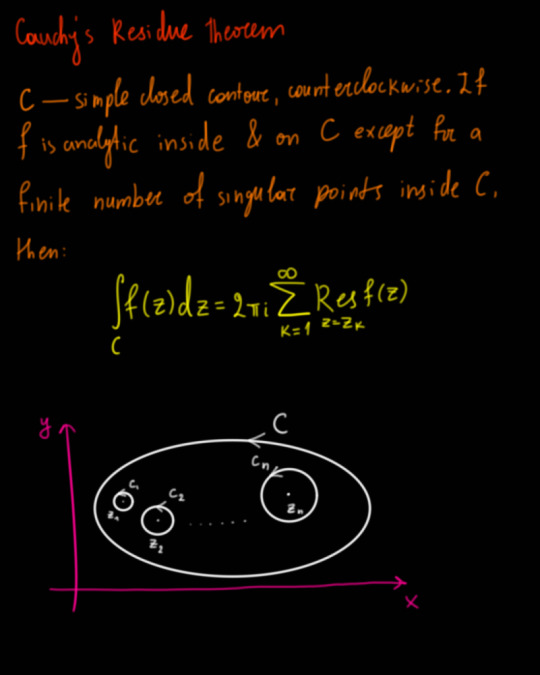 Cauchy's Residue Theorem
C — simple closed contour, counterclockwise. If
f is analytic inside & on C except for a
finite number of singular points inside C,
then:
∫_C f(z)dz = 2πi ∑_{k=1}^{∞} Res_{z=z_k} f(z)
y
C
C₁
z₁
C₂
z₂
......
Cₙ
zₙ
x